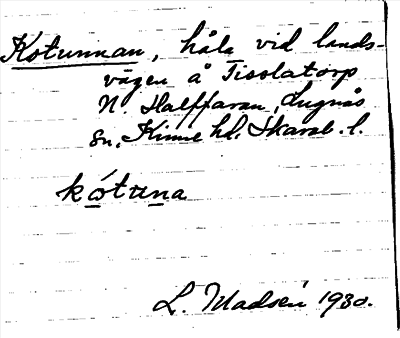 Kotunnan, håla vid lands-
vägen å Tisslatorp
N. Halffaran, Lugnås
sn, Kinne hd. Skarab. l.
kótuna
L. Madsén 1930.